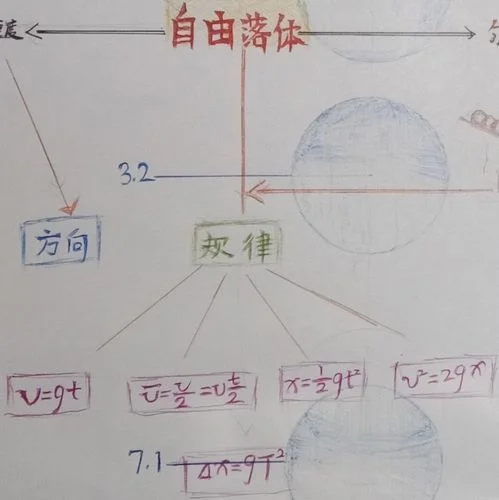 度
自由落体
3.2
方向
规律
v=gt
v̅=v/2=v_{t/2}
x=½gt²
v²=2gx
7.1
Δx=gT²